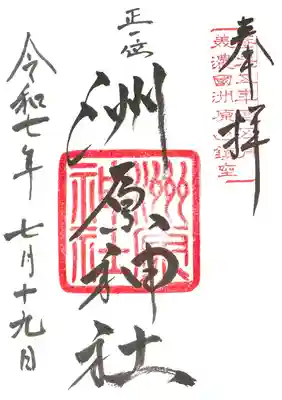 奉拝
美濃國洲原鎮座
正一位
洲原神社
洲原神社
令和七年 七月十九日